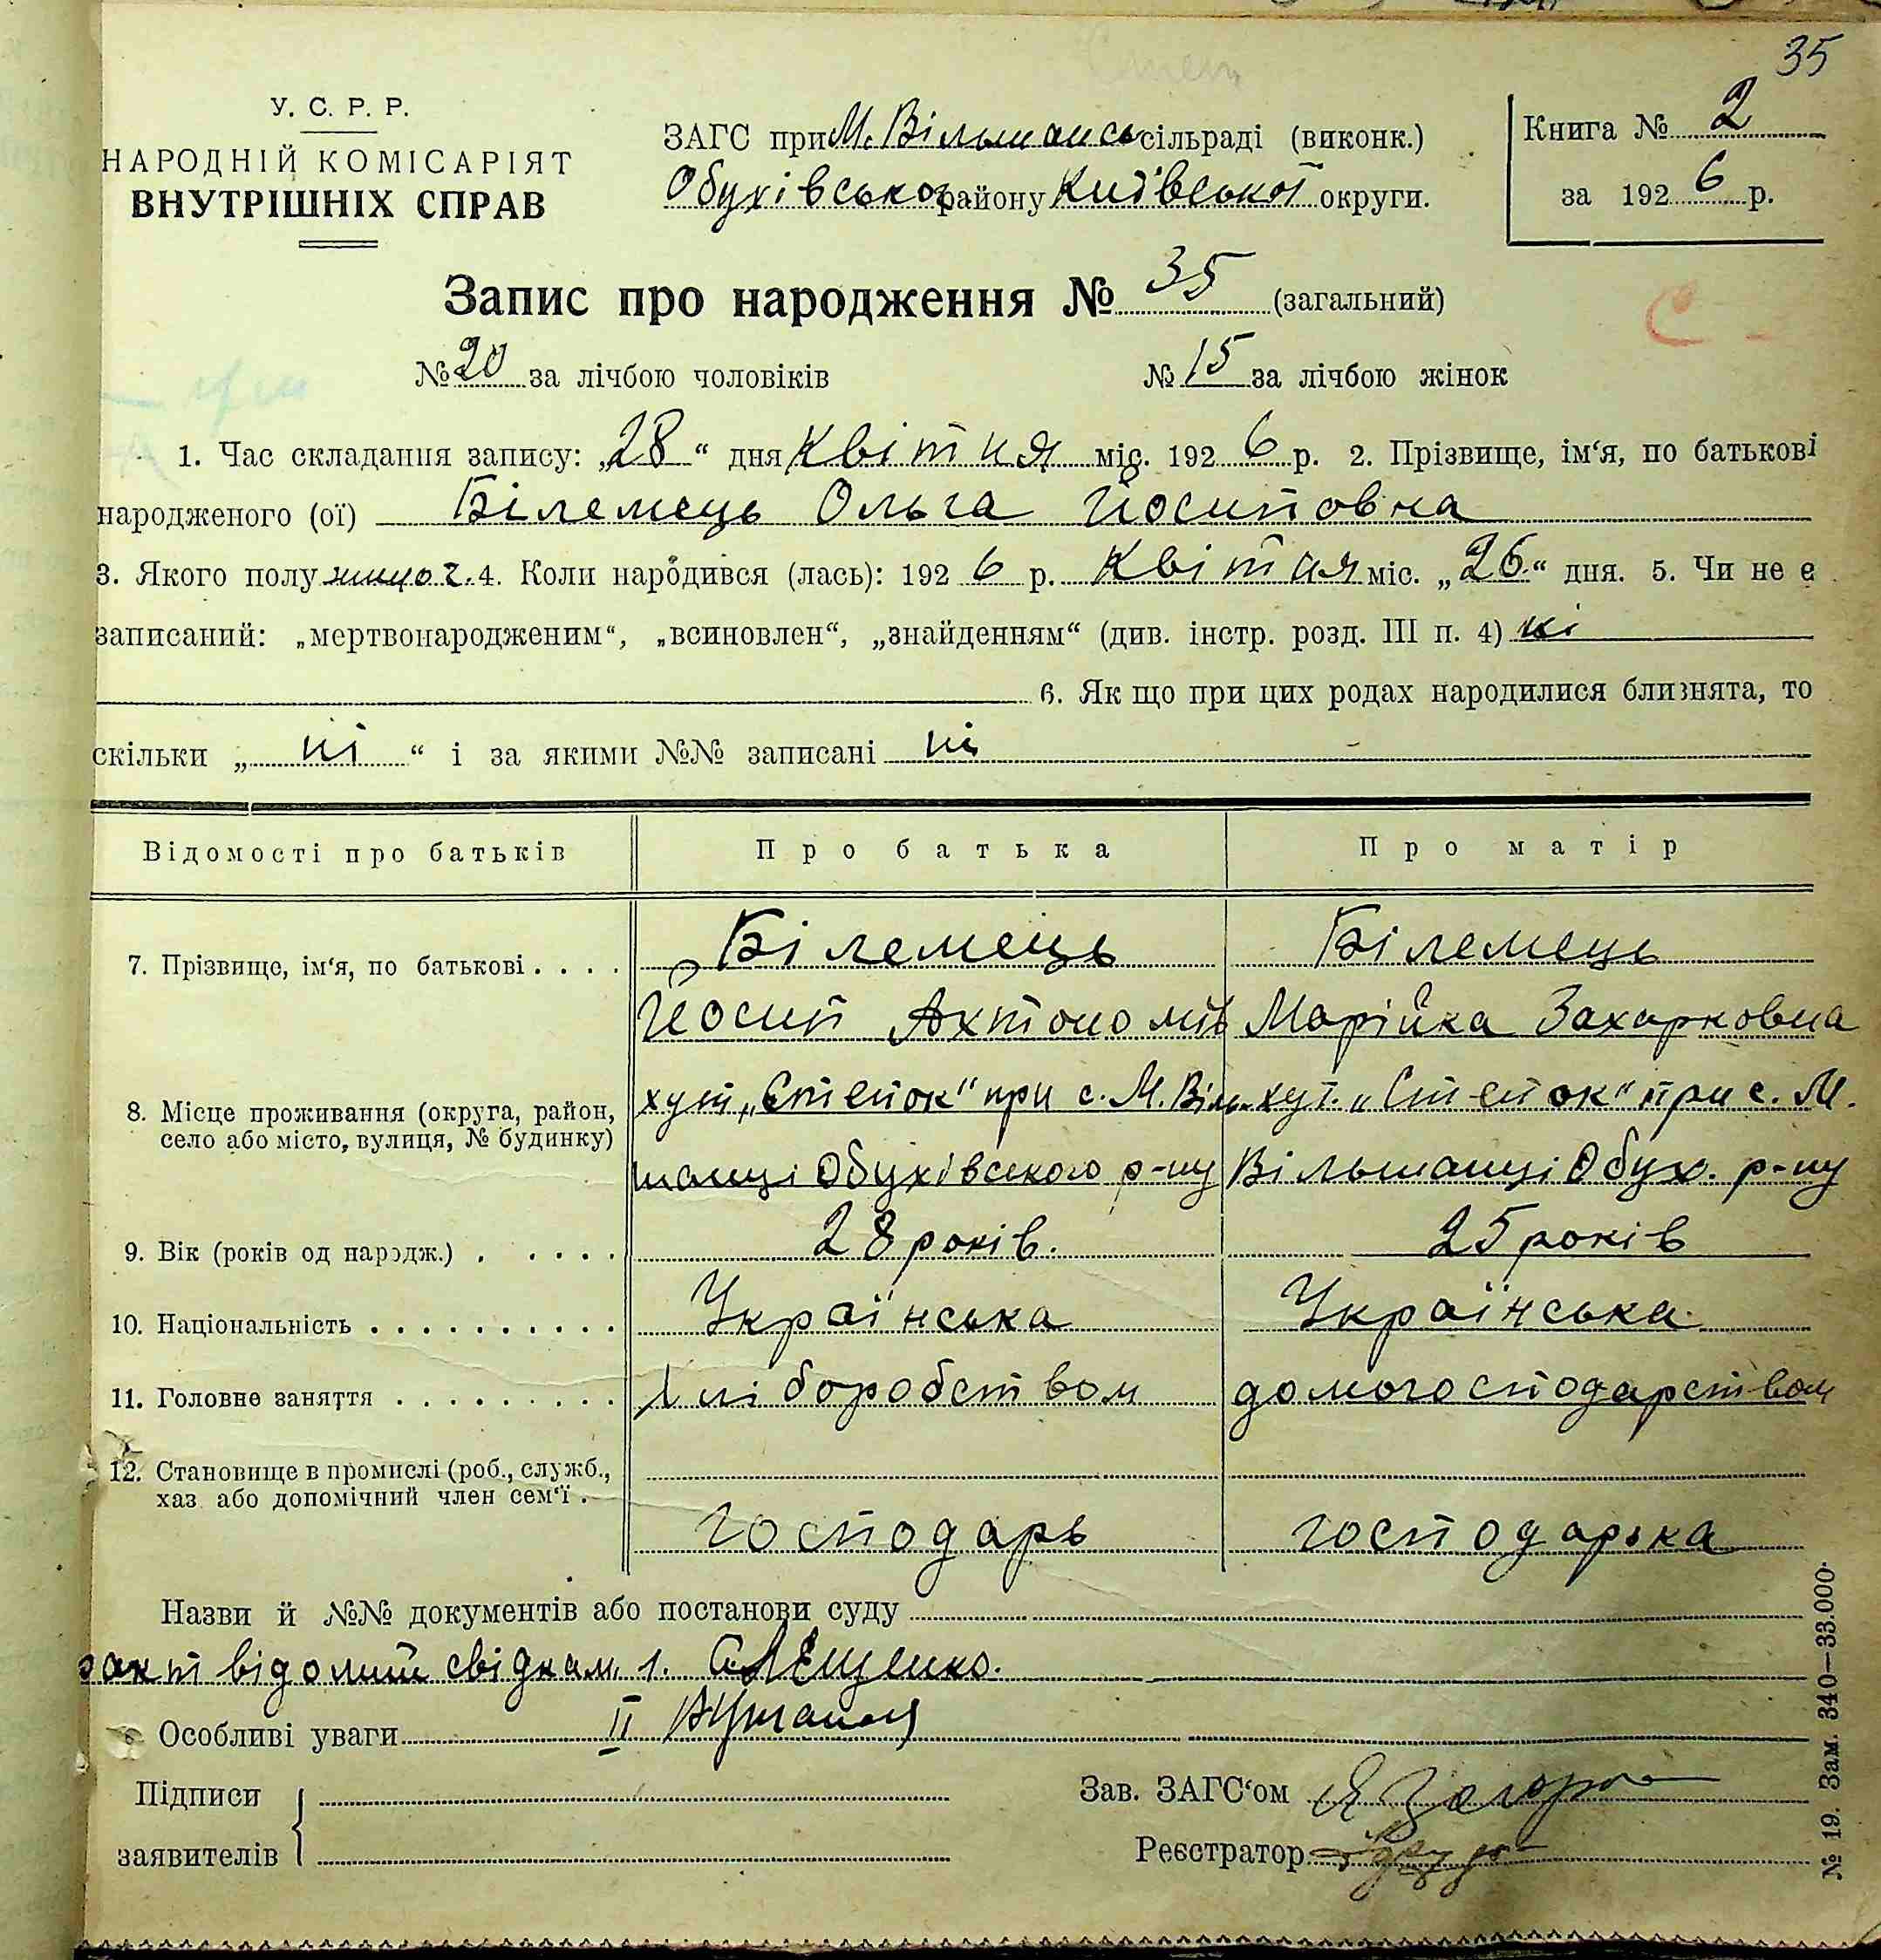 35
У. С. Р. Р.
НАРОДНІЙ КОМІСАРІЯТ
ВНУТРІШНІХ СПРАВ
ЗАГС при М. Вільшансь сільраді (виконк.)
Обухівського району Київської округи.
Книга № 2
за 1926 р.
Запис про народження № 35 (загальний)
№ 20 за лічбою чоловіків № 15 за лічбою жінок
1. Час складання запису: „28“ дня Квітня міс. 1926 р. 2. Прізвище, ім‘я, по батькові
народженого (ої) Білемець Ольга Йосиповна
3. Якого полу 4. Коли народився (лась): 1926 р. Квітня міс. „26“ дня. 5. Чи не є
записаний: „мертвонародженим“, „всиновлен“, „знайденням“ (див. інстр. розд. III п. 4) ні
6. Як що при цих родах народилися близнята, то
скільки „ні“ і за якими №№ записані ні
Відомості про батьків Про батька Про матір
7. Прізвище, ім‘я, по батькові . . . . Білемець Білемець
Йосип Ахтономів Марійка Захарковна
8. Місце проживання (округа, район, хут. „Степок“ при с. М. Віль- хут. „Степок“ при с. М.
село або місто, вулиця, № будинку)
шанці Обухівського р-ну Вільшанці Обух. р-ну
9. Вік (років од нарэдж.) . . . . . 28 років. 25 років
10. Національність . . . . . . . . . . Українська Українська
11. Головне заняття . . . . . . . . . Хліборобством домогосподарством
12. Становище в промислі (роб., служб.,
хаз або допомічний член сем‘ї .
господарь господарька
Назви й №№ документів або постанови суду
факт відомий свідкам. 1. Лещенко.
Особливі уваги II
Підписи
заявителів
Зав. ЗАГС‘ом
Реєстратор
№ 19. Зам. 340—33.000.